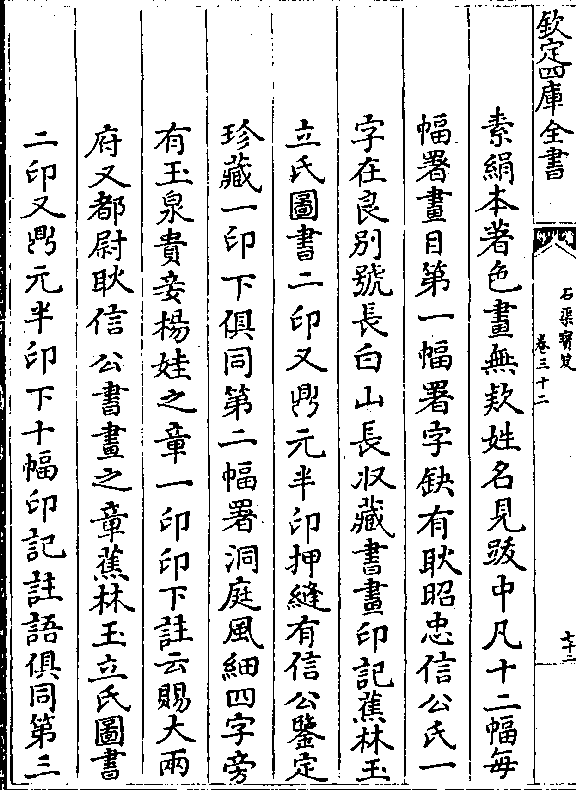 欽定四庫全書
石渠寶笈
卷三十二
七十二
素絹本著色畫無欵姓名見跋中凡十二幅每
幅署畫目第一幅署字缺有耿昭忠信公氏一
字在良别號長白山長收藏書畫印記蕉林玉
立氏圖書二印又鼎元半印押縫有信公鑒定
珍藏一印下俱同第二幅署洞庭風細四字旁
有玉泉貴妾楊娃之章一印印下註云賜大兩
府又都尉耿信公書畫之章蕉林玉立氏圖書
二印又鼎元半印下十幅印記註語俱同第三